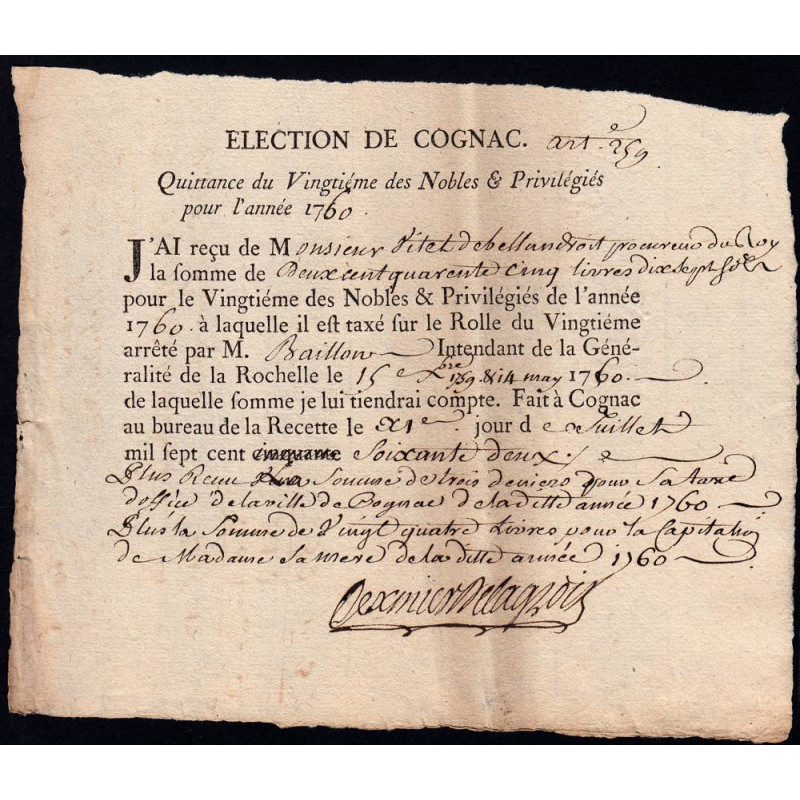 ELECTION DE COGNAC. art.e 259
Quittance du Vingtiéme des Nobles & Privilégiés
pour l'année 1760.
J'AI reçu de Monsieur procureur du Roy
la somme de Deux cent quarente cinq livres dix sept sols
pour le Vingtiéme des Nobles & Privilégiés de l'année
1760. à laquelle il est taxé sur le Rolle du Vingtiéme
arrêté par M. Baillon Intendant de la Géné-
ralité de la Rochelle le 15e Xbre 1759 & 14 may 1760.
de laquelle somme je lui tiendrai compte. Fait à Cognac
au bureau de la Recette le jour de Juillet
mil sept cent cinquante Soixante deux ./.
Plus Receu la Somme de trois deniers pour sa taxe
d'office de la ville de Cognac de la ditte année 1760
Plus la Somme de Vingt quatre Livres pour la Capitation
de Madame sa mere de la ditte année 1760